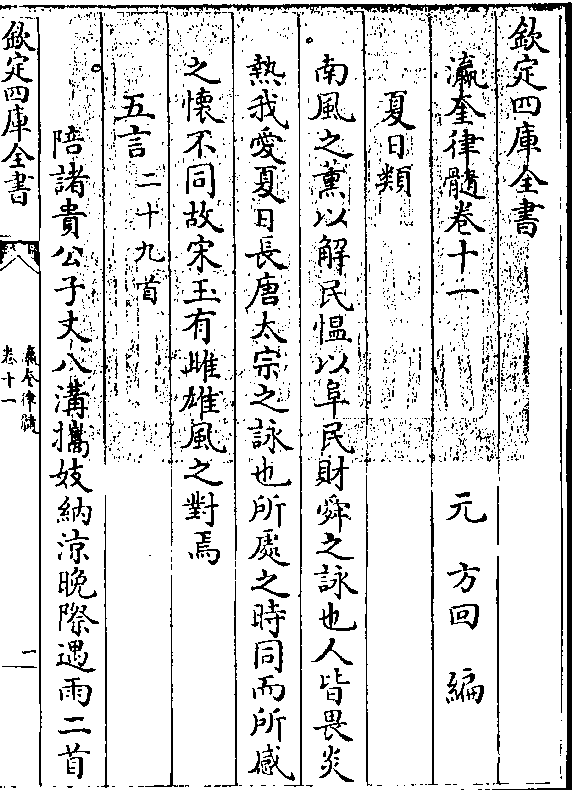 欽定四庫全書
瀛奎律髓卷十一 元 方回 編
夏日類
南風之薫以解民愠以阜民財舜之詠也人皆畏炎
熱我愛夏日長唐太宗之詠也所處之時同而所感
之懷不同故宋玉有雌雄風之對焉
五言 二十九首
陪諸貴公子丈八溝攜妓納涼晚際遇雨二首
欽定四庫全書
瀛奎律髓
卷十一
一